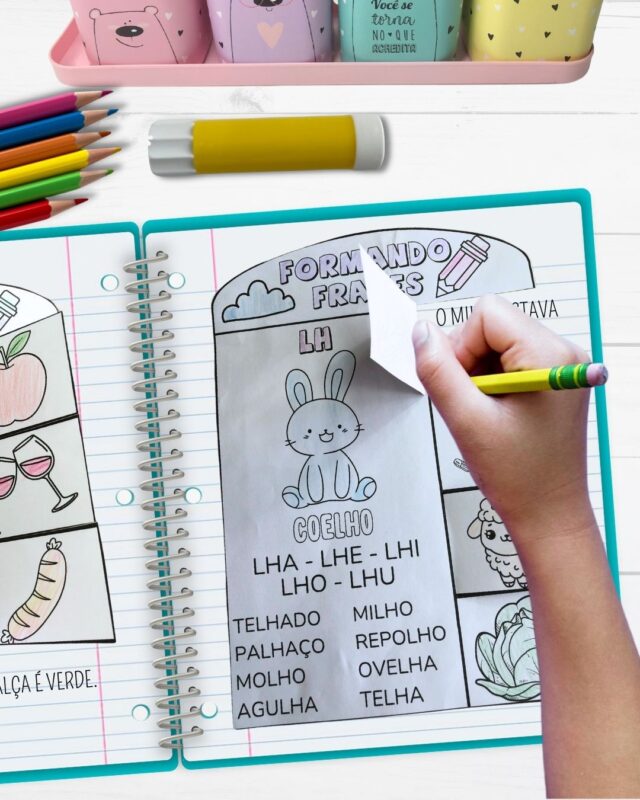 Você se
torna
NO QUE
ACREDITA
FORMANDO
FRASES
LH
COELHO
LHA - LHE - LHI
LHO - LHU
TELHADO MILHO
PALHAÇO REPOLHO
MOLHO OVELHA
AGULHA TELHA
É VERDE.